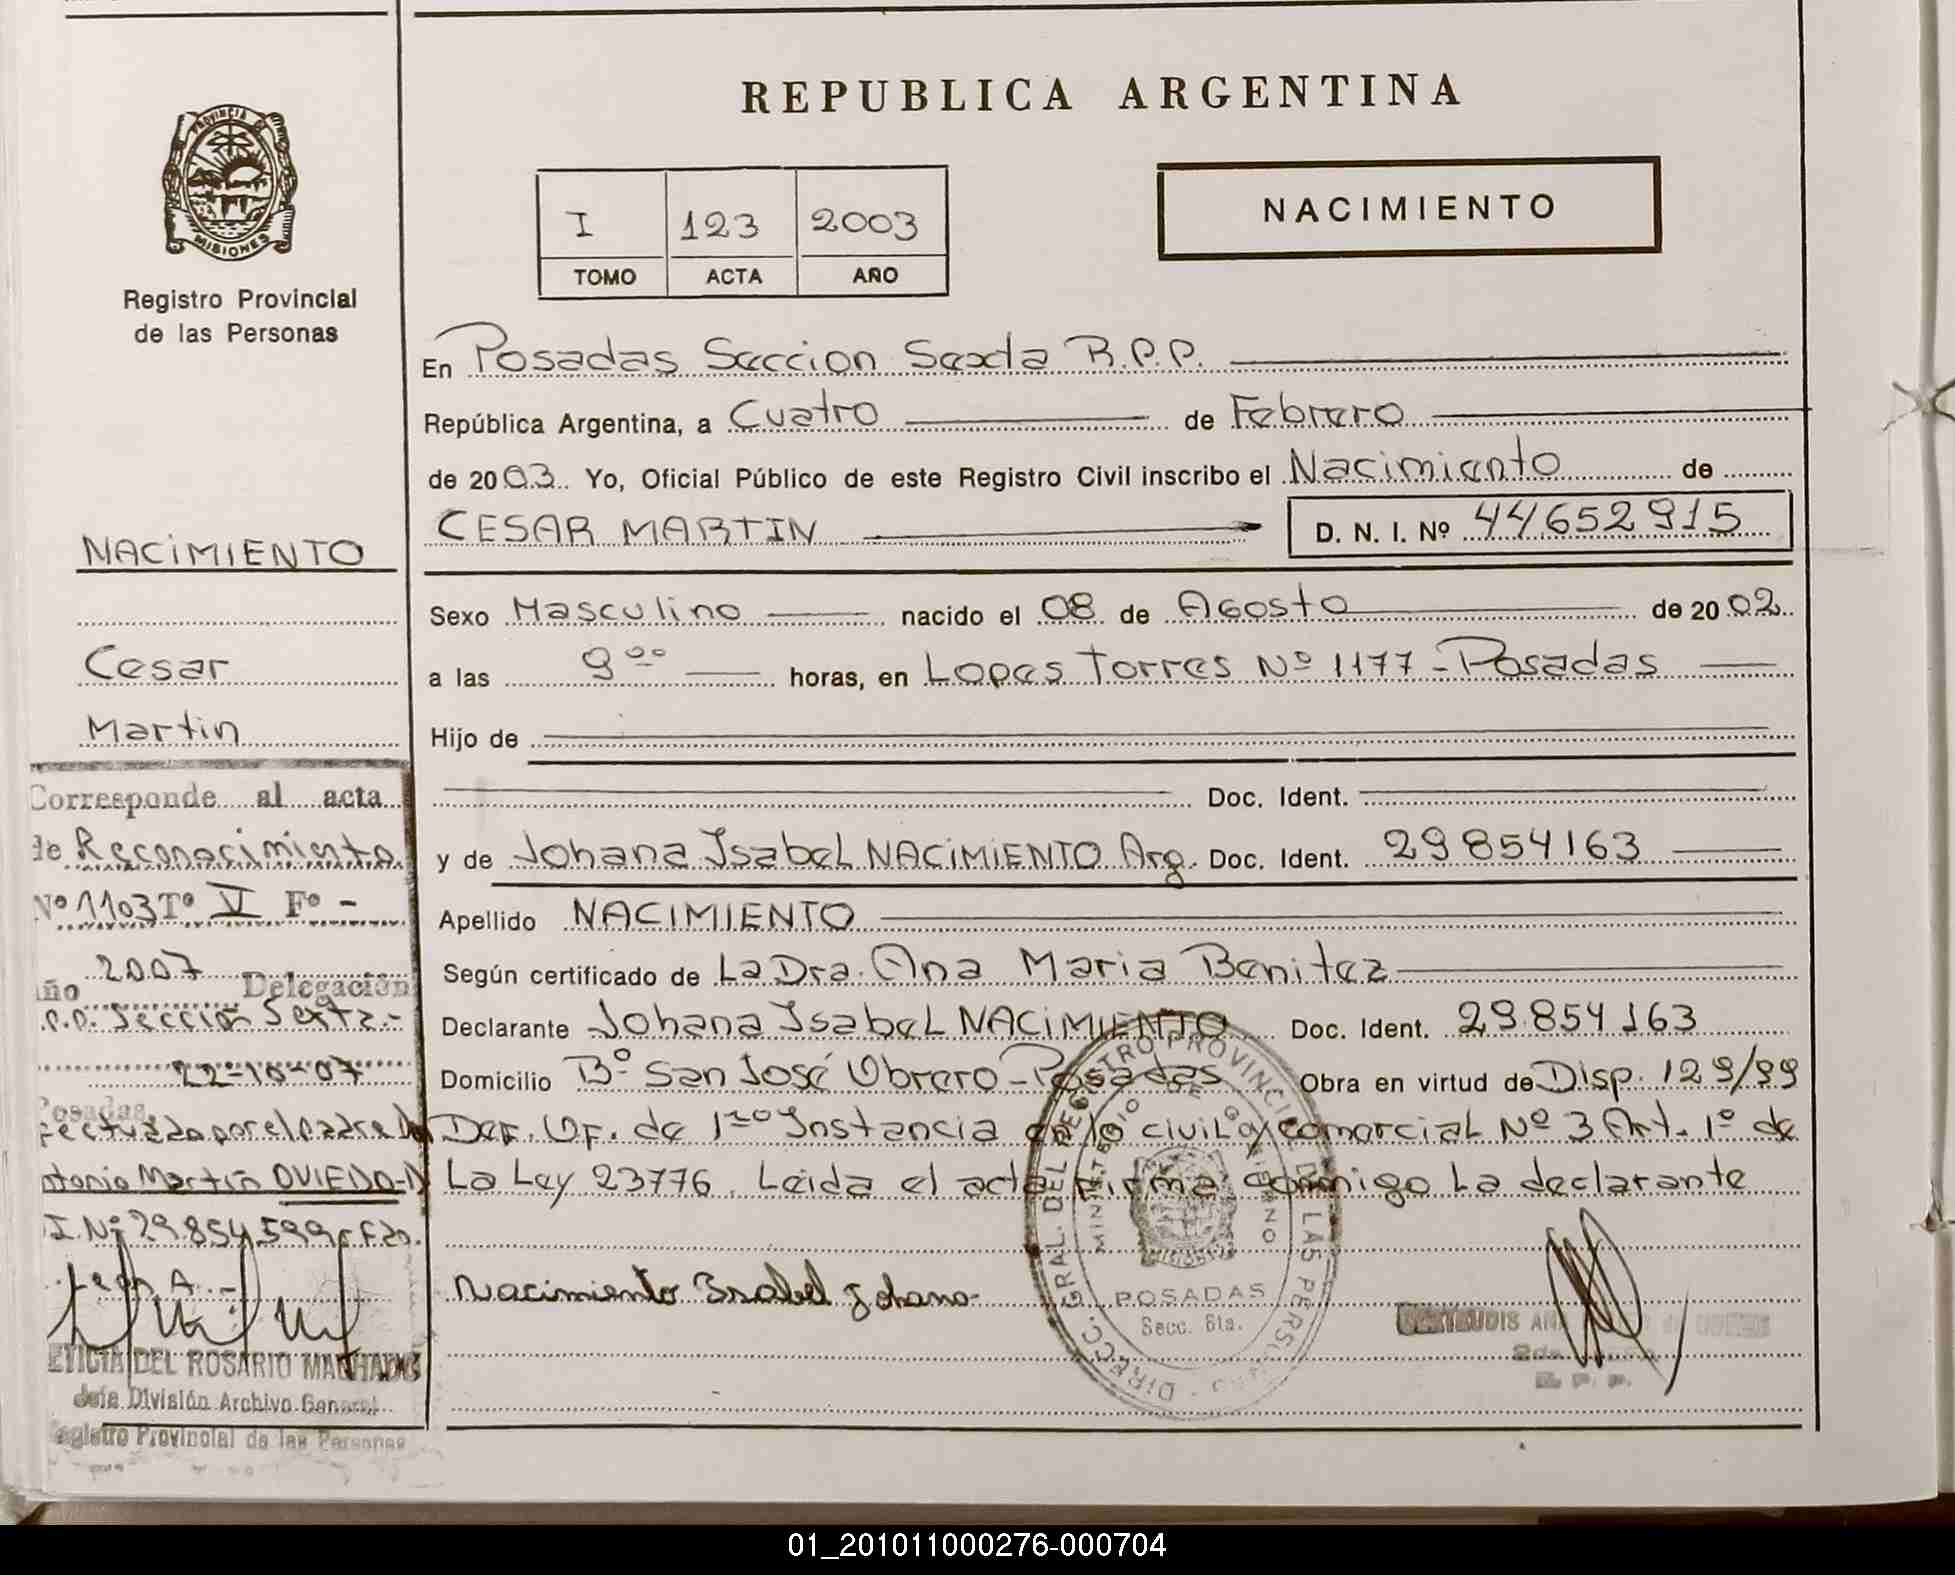 REPUBLICA ARGENTINA
PROVINCIA DE
MISIONES
Registro Provincial
de las Personas
I 123 2003
TOMO ACTA AÑO
NACIMIENTO
En Posadas Seccion Sexta R.P.P.
República Argentina, a Cuatro de Febrero
de 2003. Yo, Oficial Público de este Registro Civil inscribo el Nacimiento de
CESAR MARTIN D. N. I. Nº 44652915
Sexo Masculino nacido el 08 de Agosto de 2002
a las 9 ºº horas, en Lopes Torres Nº 1177 - Posadas
Hijo de
Doc. Ident.
y de Johana Isabel NACIMIENTO Arg. Doc. Ident. 29854163
Apellido NACIMIENTO
Según certificado de La Dra. Ana Maria Benitez
Declarante Johana Isabel NACIMIENTO Doc. Ident. 29.854163
Domicilio Bº San José Obrero - Posadas Obra en virtud de Disp. 129/99
Def. Of. de 1ra Instancia en lo civil y comercial Nº 3 Art. 1º de
La Ley 23776. Leida el acta firma conmigo La declarante
Nacimiento Isabel Johana
NACIMIENTO
Cesar
Martin
Corresponde al acta
de Reconocimiento
Nº 1103 Tº V Fº -
año 2007 Delegación
Sección Sexta.-
22-10-07
Posadas
efectuado por el padre
Antonio Martin OVIEDO - D
I. Nº 29.854.599
LETICIA DEL ROSARIO MACHADO
Jefe División Archivo General
Registro Provincial de las Personas
DIRECC. GRAL. DEL REGISTRO PROVINCIAL DE LAS PERSONAS
MINISTERIO DE GOBIERNO
MISIONES
POSADAS
Secc. 6ta.
R. P. P.
01_201011000276-000704